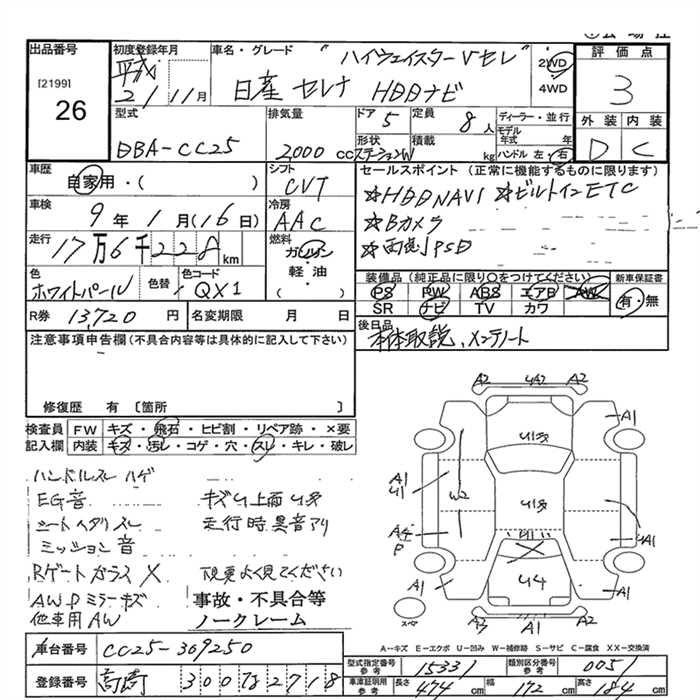 出品番号 初度登録年月 車名・グレード "ハイウェイスターVセレ" 評価点
[2199] 平成 日産 セレナ HDDナビ 2WD 3
26 21 11月 4WD 外装 内装
型式 排気量 ドア 5 定員 8人 ディーラー・並行 D C
モデル年式 年
DBA-CC25 2,000cc 形状 ステーションW 積載 kg ハンドル 左・右
車歴 シフト セールスポイント (正常に機能するものに限ります)
自家用・( ) CVT ☆HDDNAVI ☆ビルトインETC
車検 冷房 ☆Bカメラ
9年1月(16日) AAC ☆両側PSD
走行 燃料
17万6千228km ガソリン
軽油・( )
色 色替 色コード 装備品(純正品に限り○をつけてください) 新車保証書
ホワイトパール QX1 PS PW ABS エアB AW 有・無
SR ナビ TV カワ
R券 13,720円 名変期限 月 日 後日品
本体取説、メンテノート
注意事項申告欄(不具合内容等は具体的に記入して下さい)
修復歴 有 〔箇所 〕
検査員 FW キズ・飛石・ヒビ割・リペア跡・×要
記入欄 内装 キズ・汚レ・コゲ・穴・スレ・キレ・破レ
ハンドルスレ ハゲ
EG音 キズ凹上面凹多
シートヘタリ スレ 走行時異音アリ
ミッション音
Rゲートガラス X 現車よく見てください
AW Dミラーキズ 事故・不具合等
他車用AW ノークレーム
A2 UA2 A2
A1
U多
A1
U1 W2 U多
A4
P U1 A1
X
A1 U4 A1
スペア A1
A‥キズ E‥エクボ U‥凹み W‥補修跡 S‥サビ C‥腐食 XX‥交換済
車台番号 CC25-369250
型式指定番号 参考 15331 類別区分番号 参考 0051
登録番号 高崎 300 2718
車津証明用 参考 長さ 474cm 幅 172cm 高さ 184cm